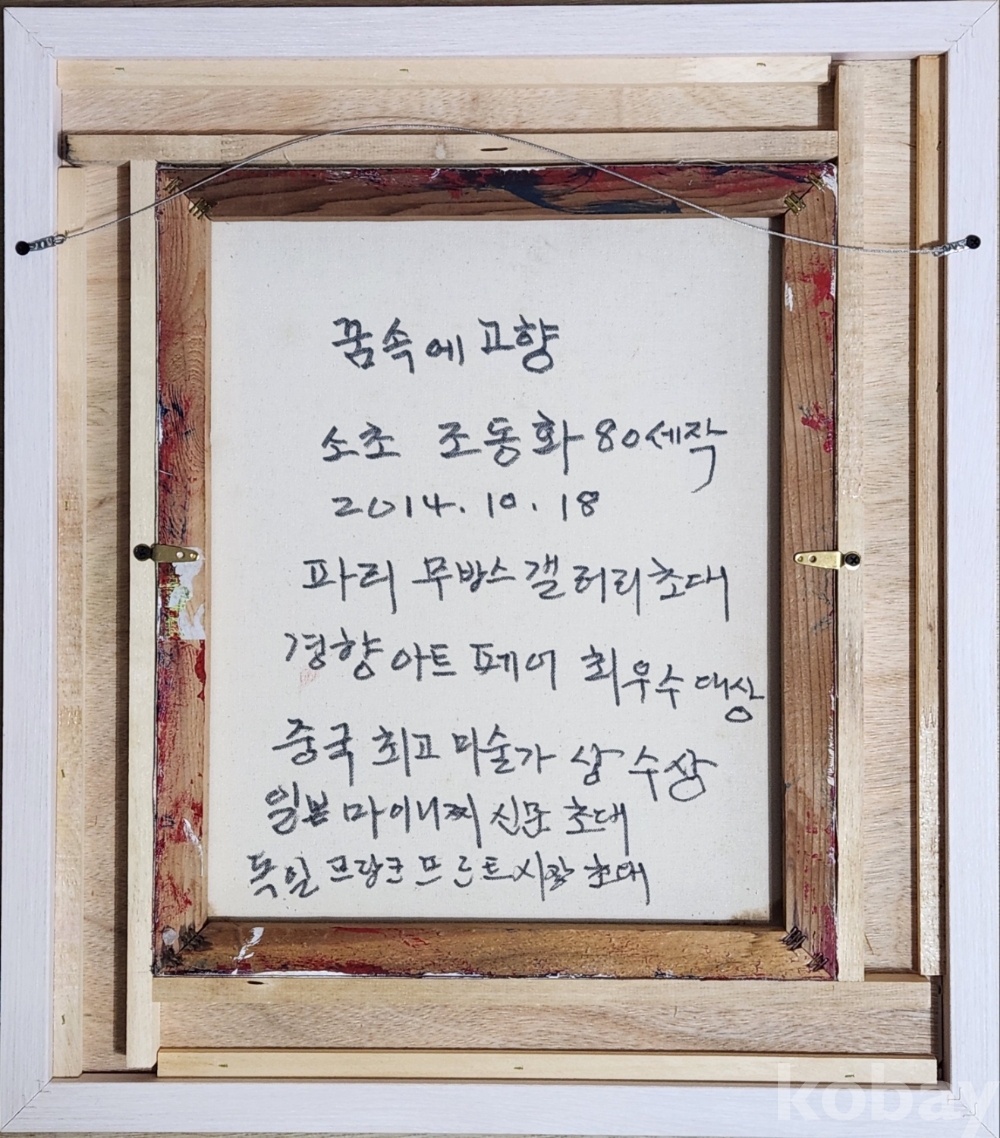 꿈속에 고향
소초 조동화 80세작
2014.10.18
파리 무방스 갤러리 초대
경향 아트 페어 최우수 대상
중국 최고 미술가 상 수상
일본 마이니찌 신문 초대
독일 프랑크프르트 시장 초대
kobay